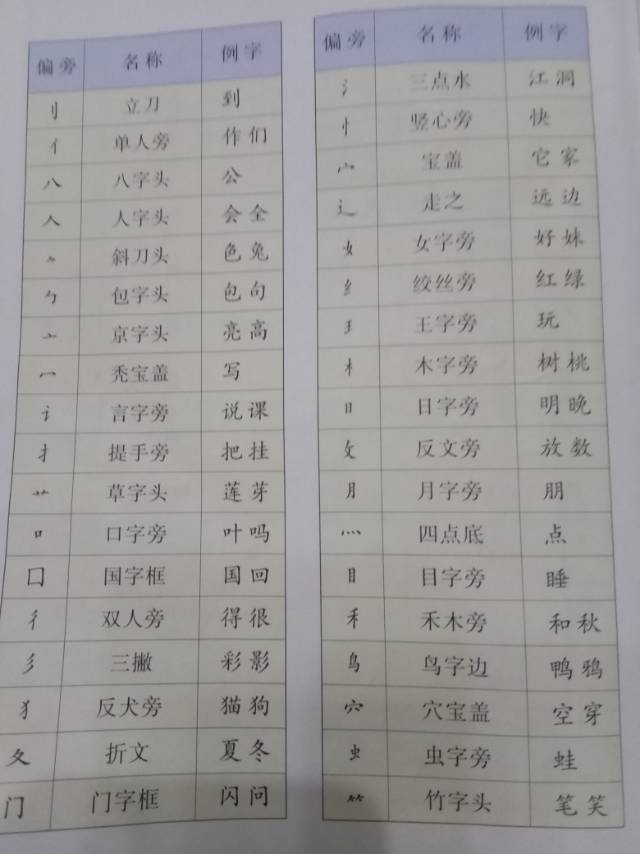 偏旁 名称 例字
刂 立刀 到
亻 单人旁 作们
八 八字头 公
人 人字头 会全
⺈ 斜刀头 色兔
勹 包字头 包句
亠 京字头 亮高
冖 秃宝盖 写
讠 言字旁 说课
扌 提手旁 把挂
艹 草字头 莲芽
口 口字旁 叶吗
囗 国字框 国回
彳 双人旁 得很
彡 三撇 彩影
犭 反犬旁 猫狗
夂 折文 夏冬
门 门字框 闪问
偏旁 名称 例字
氵 三点水 江洞
忄 竖心旁 快
宀 宝盖 它家
辶 走之 远边
女 女字旁 好妹
纟 绞丝旁 红绿
王 王字旁 玩
木 木字旁 树桃
日 日字旁 明晚
攵 反文旁 放数
月 月字旁 朋
灬 四点底 点
目 目字旁 睡
禾 禾木旁 和秋
鸟 鸟字边 鸭鸦
穴 穴宝盖 空穿
虫 虫字旁 蛙
⺮ 竹字头 笔笑